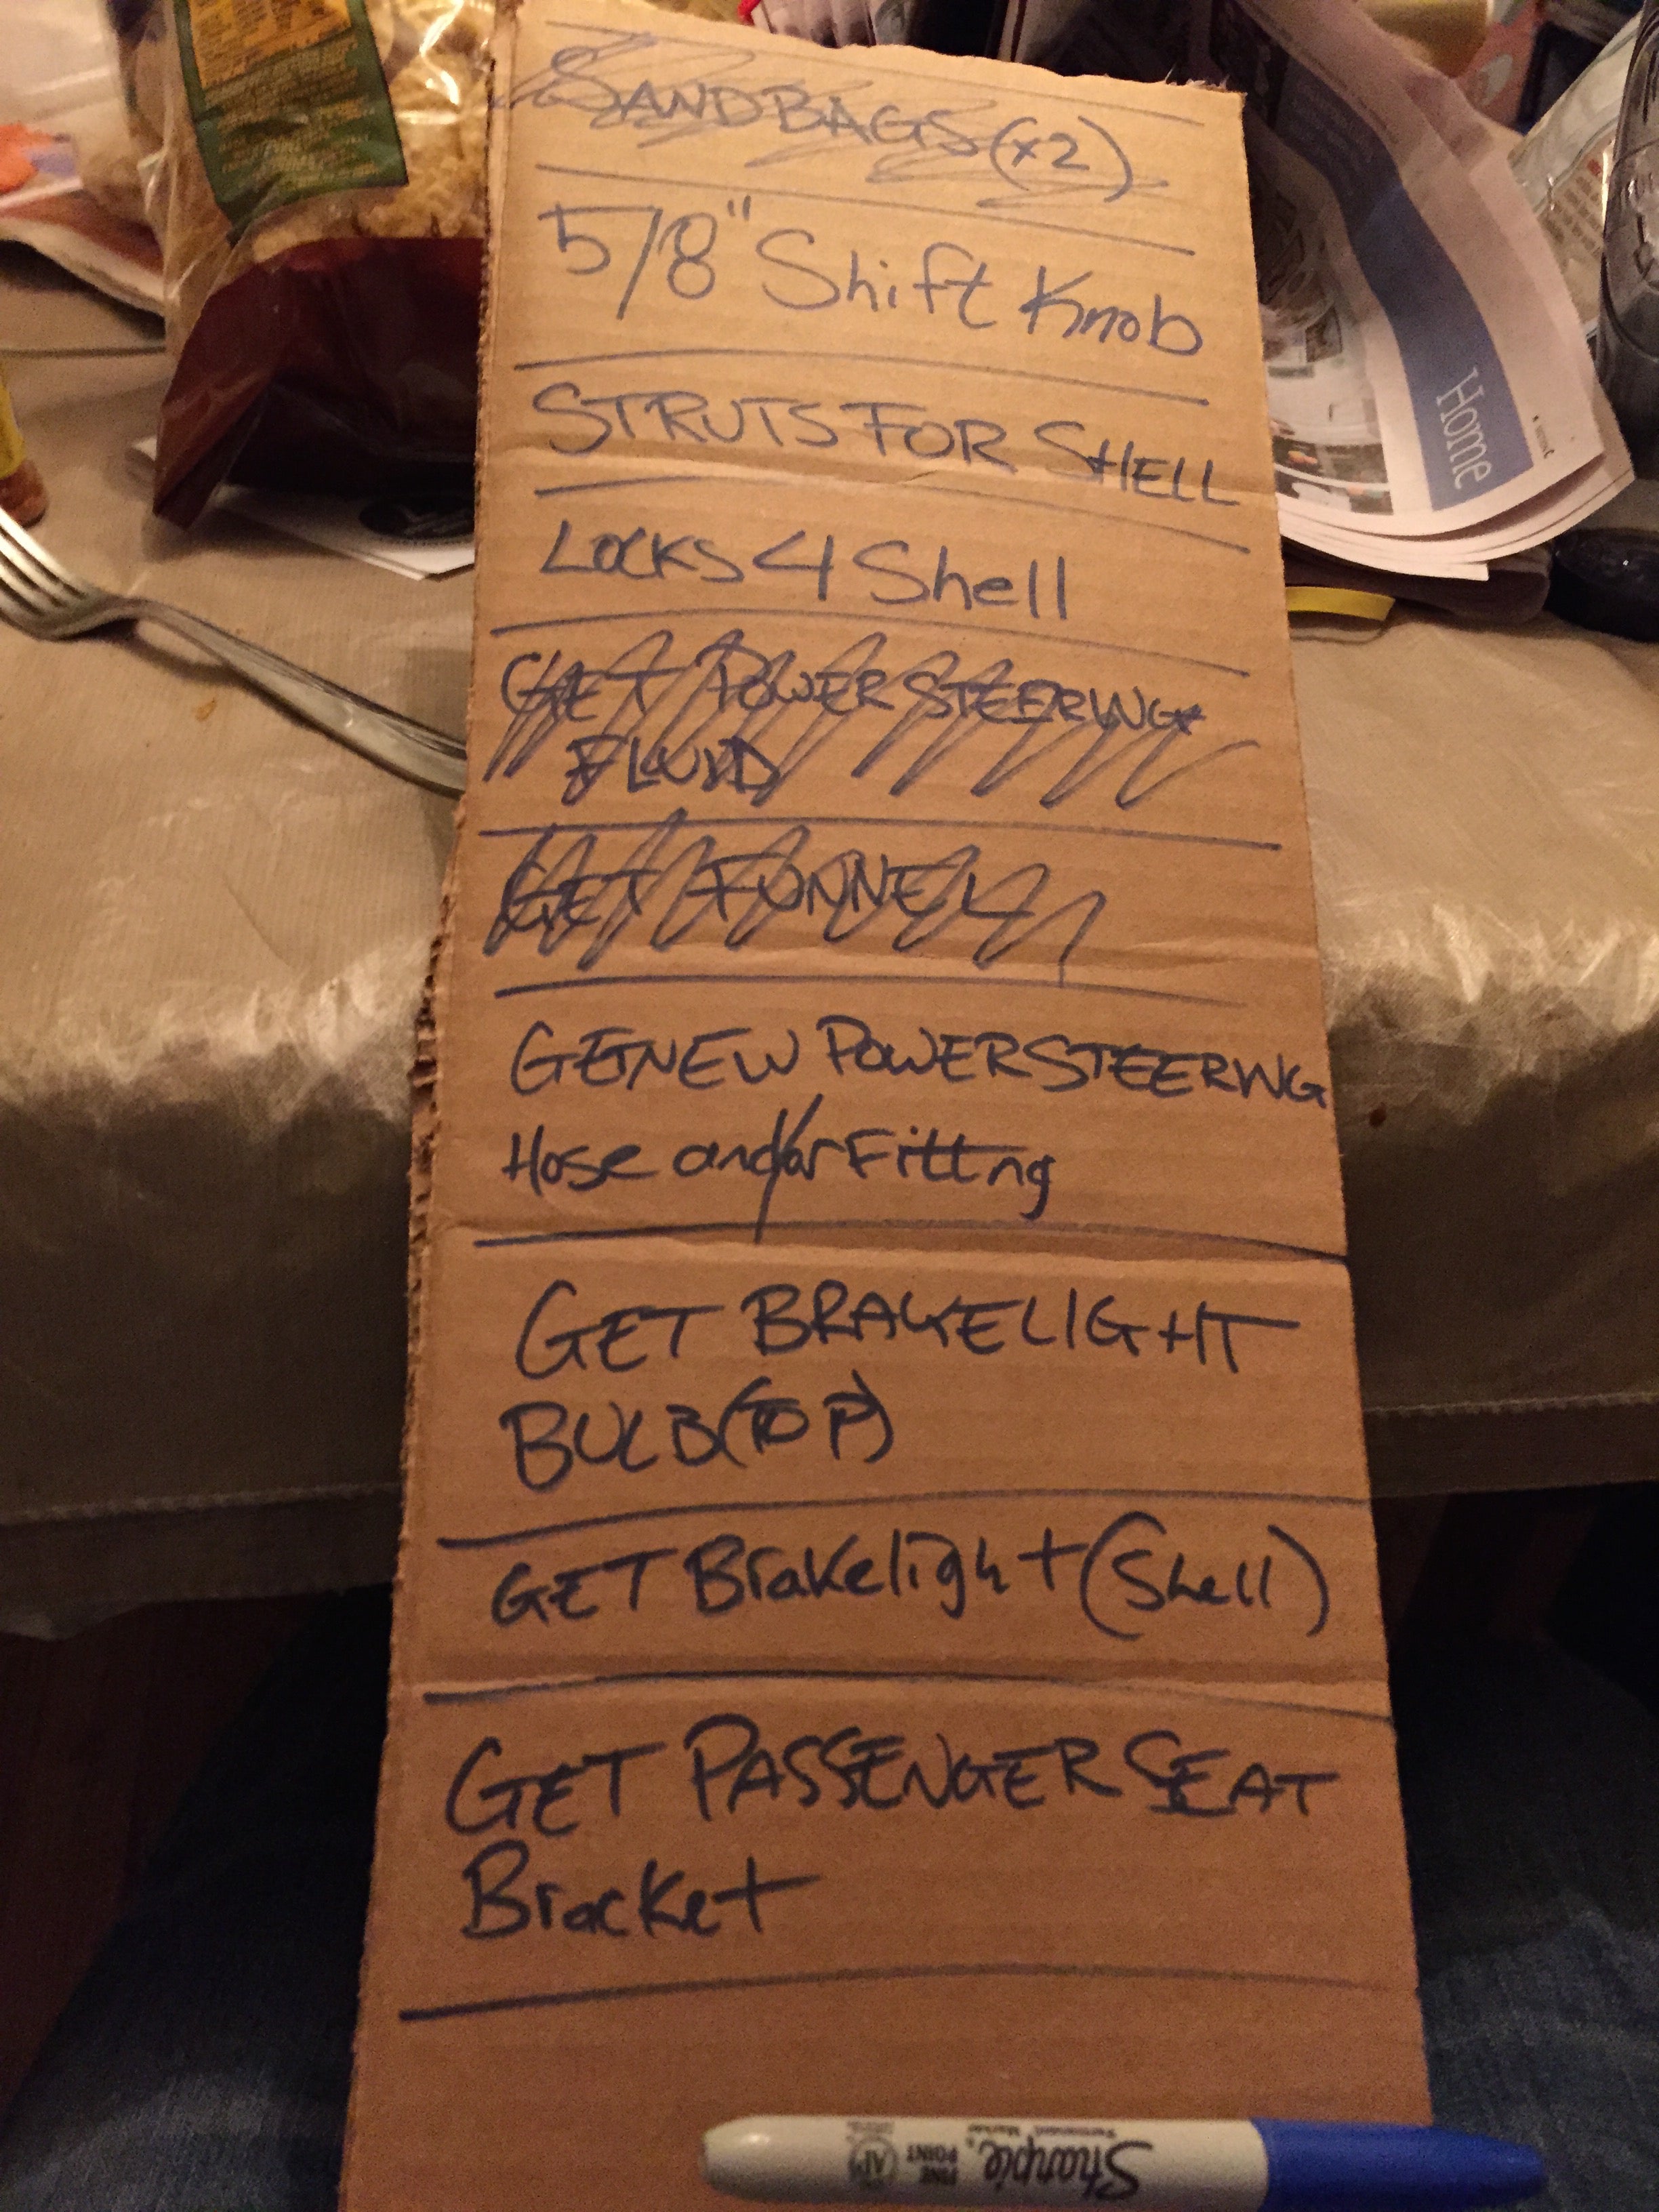 SANDBAGS (x2)
5/8" Shift Knob
STRUTS FOR SHELL
LOCKS 4 Shell
GET POWER STEERING
FLUID
GET FUNNEL
GET NEW POWER STEERING
Hose and/or Fitting
GET BRAKELIGHT
BULB (TOP)
GET Brakelight (Shell)
GET PASSENGER SEAT
Bracket
Home
Sharpie
FINE
POINT
Permanent
Marker
AP